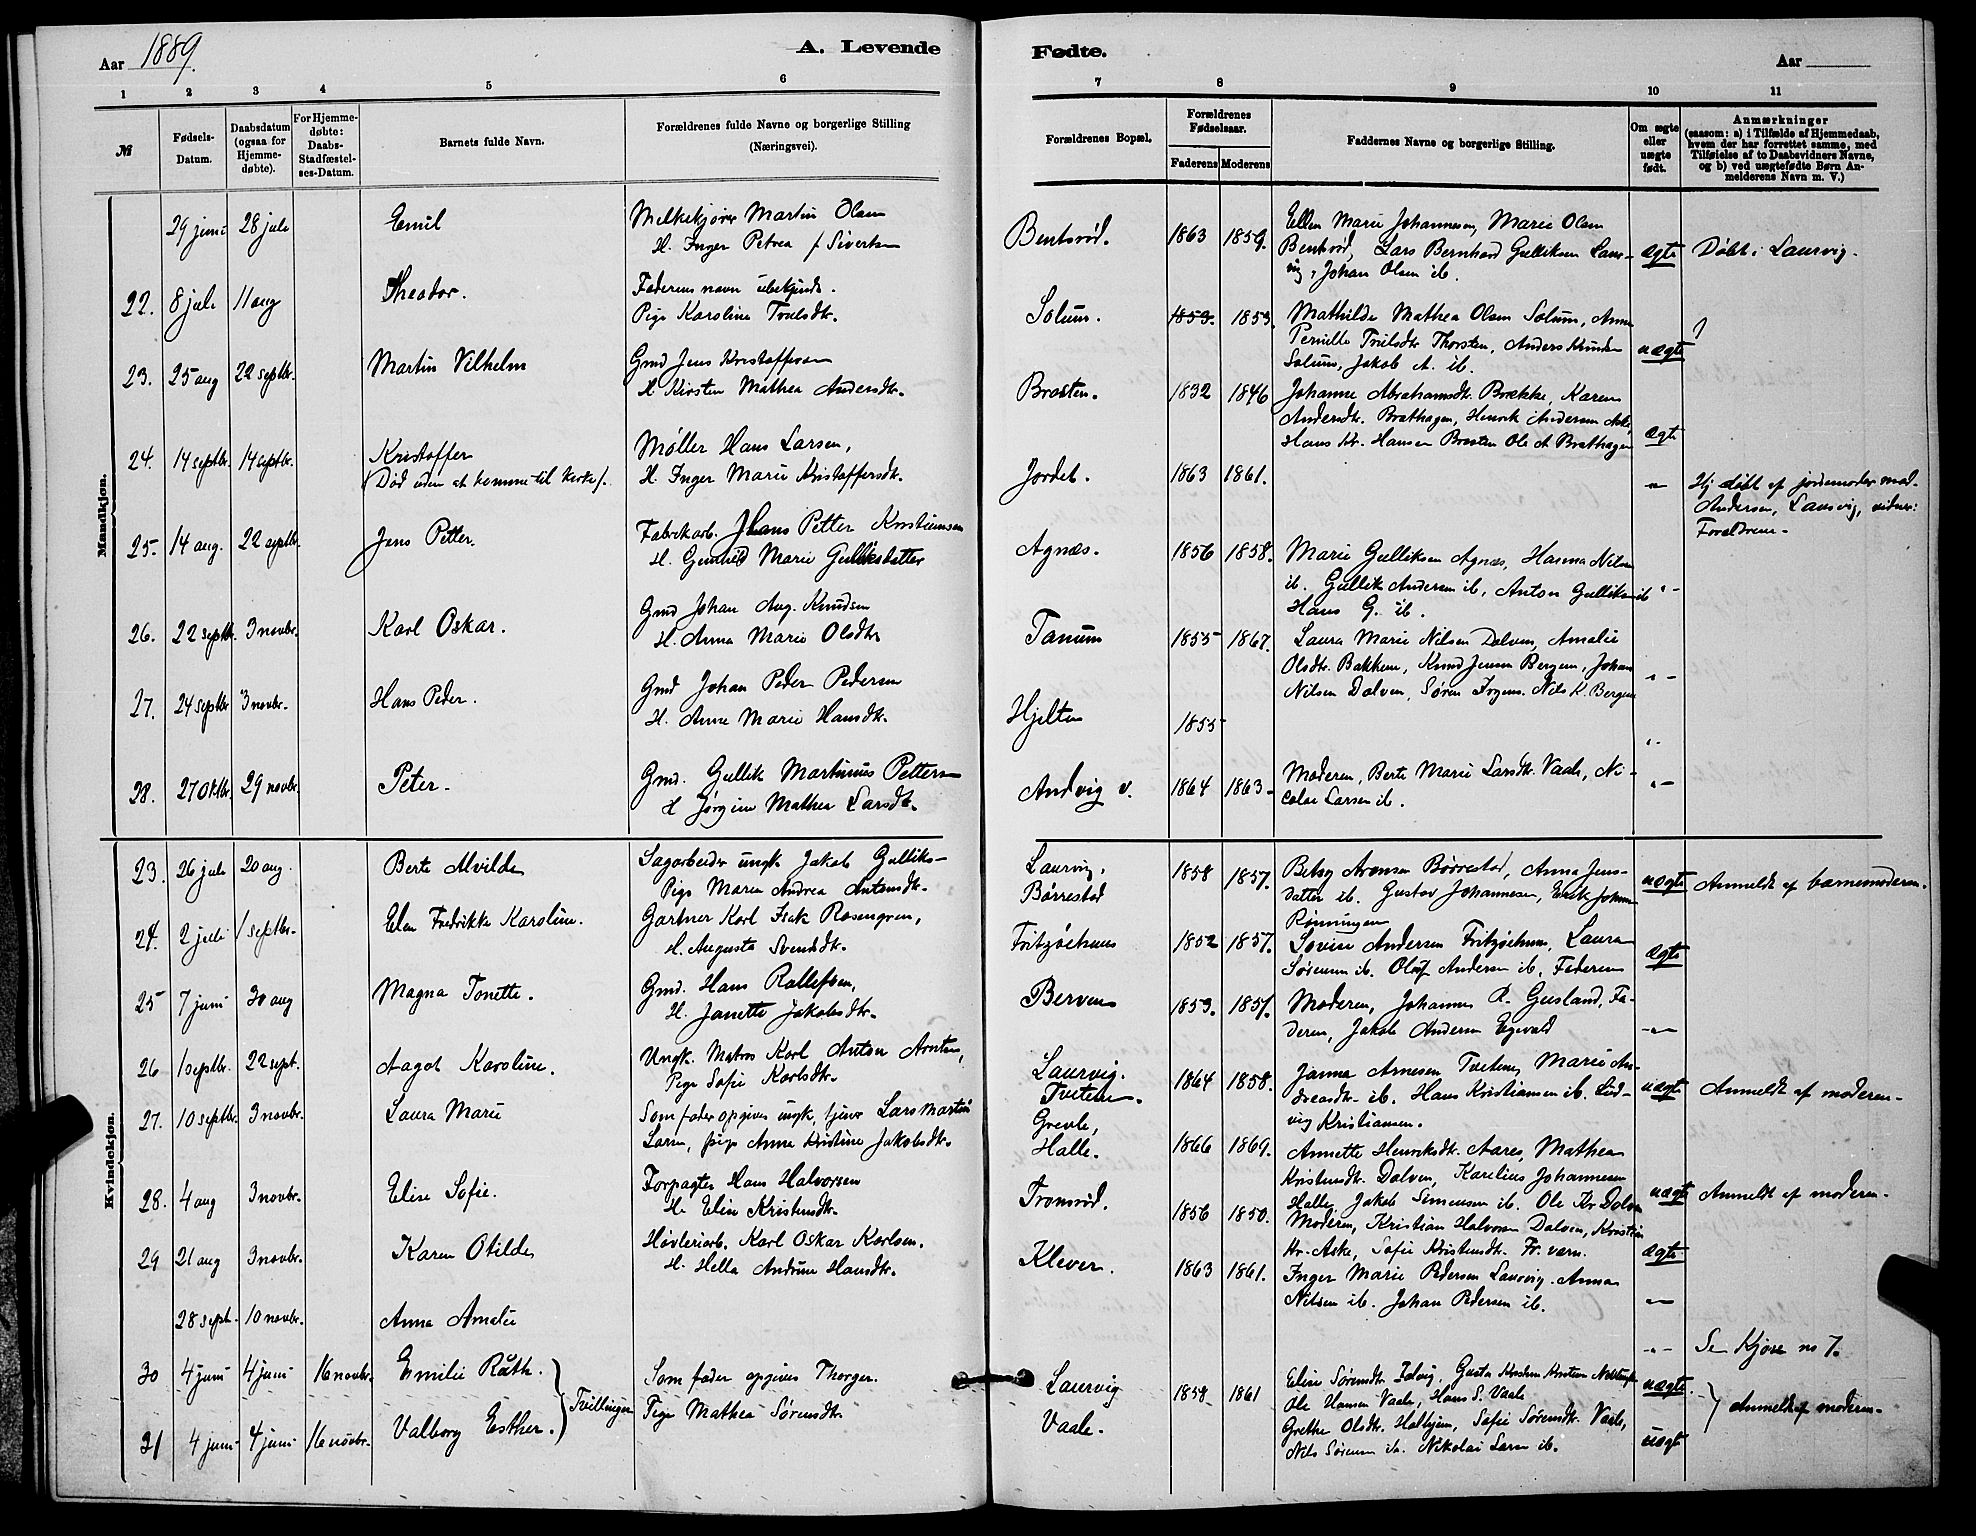 Aar 1889.
A. Levende
1 2 3 4 5 6
№
Fødsels-Datum.
Daabsdatum (ogsaa for Hjemmedøbte).
For Hjemmedøbte: Daabs-Stadfæstelses-Datum.
Barnets fulde Navn.
Forældrenes fulde Navne og borgerlige Stilling (Næringsvei).
Mandkjøn.
29 juni 28 juli Emil Melkekjører Martin Olsen
H. Inger Petrea f Sivertsen
22. 8 juli 11 aug Theodor. Faderens navn ubekjendt.
Pige Karoline Trulsdtr.
23. 25 aug 22 septbr. Martin Vilhelm Gmd Jens Kristoffersen
H. Kirsten Mathea Andersdtr.
24. 14 septbr. 14 septbr. Kristoffer Møller Hans Larsen,
(Død uden at komme til kirke). H. Inger Marie Kristoffersdtr.
25. 14 aug. 22 septbr. Jens Petter. Fabrikarb. Hans Petter Kristiansen
H. Gunhild Marie Gulliksdatter
26. 22 septbr. 3 novbr. Karl Oskar. Gmd Johan Aug. Knudsen
H. Anna Marie Olsdtr
27. 24 septbr 3 novbr. Hans Peder. Gmd Johan Peder Pedersen
H. Anne Marie Hansdtr.
28. 27 oktbr. 29 novbr. Peter. Gmd. Gullik Martinius Pettersen
H Jørgine Mathea Larsdtr.
Kvindekjøn.
23. 26 juli 20 aug. Berte Alvilde Sagarbeider ungk Jakob Gulliks-
Pige Maren Andrea Antonsdtr.
24. 2 juli 1 septbr. Elen Fredrikke Karoline. Gartner Karl Isak Rosengren,
H. Augusta Svendsdtr.
25 7 juni 30 aug Magna Tonette. Gmd. Hans Rollefsen,
H. Janette Jakobsdtr.
26 1 septbr. 22 sept. Aagot Karoline. Ungk. Matros Karl Anton Arntsen,
Pige Sofie Karlsdtr.
27. 10 septbr. 3 novbr. Laura Marie Som fader opgives ungk. tjener Lars Martin
Larsen, pige Anna Kristine Jakobsdtr.
28. 4 aug 3 novbr. Elise Sofie. Forpagter Hans Halvorsen
H. Elise Kristensdtr.
29 21 aug 3 novbr. Karen Otilde Høvleriarb. Karl Oskar Karlsen.
H. Hella Andrine Hansdtr.
28 sept. 10 novbr. Anna Amalie
30 4 juni 4 juni 16 novbr. Emilie Ruth. Som fader opgives Thorger.
Tvillinger Pige Mathea Sørensdtr.
31 4 juni 4 juni 16 novbr. Valborg Esther.
Fødte.
Aar
7 8 9 10 11
Forældrenes Bopæl.
Forældrenes Fødselsaar.
Faderens Moderens
Faddernes Navne og borgerlige Stilling.
Om ægte eller uægte født.
Anmærkninger
(saasom: a) i Tilfælde af Hjemmedaab, hvem der har forrettet samme, med Tilføielse af to Daabsvidners Navne, og b) ved uægtefødte Børn Anmelderens Navn m. V.)
Bentsrød. 1863 1859. Ellen Marie Johannesen, Marie Olsen
Bentsrød, Lars Bernhard Gulliksen Laur- ægte Døbt i Laurvig.
vig, Johan Olsen ib.
Solum. 1853. 1853. Mathilde Mathea Olsen Solum, Anne
Pernille Trulsdtr Thorsten, Anders Knudsen uægte ?
Solum, Jakob A. ib.
Brosten. 1832 1846 Johanne Abrahamsdtr. Brække, Karen
Andersdtr. Brathagen, Henrik Andersen Aske, ægte
Hans Kr. Hansen Brosten Ole A Brathagen
Jordet. 1863 1861. Hj. døbt af jordemoder mad.
Andersen, Laurvig, vidner:
Foreldrene.
Agnæs. 1856 1858. Marie Gulliksen Agnæs, Hanna Nilsen
ib. Gullik Andersen ib, Anton Gulliksen ib
Hans G. ib.
Tanum 1855 1867. Laura Marie Nilsen Dolven, Amalie
Olsdtr. Bakken, Knud Jensen Bergen, Johan
Nilsen Dolven, Søren Jrgens. Nils K. Bergen
Hjelten 1855
Andvig v. 1864 1863. Moderen, Berte Marie Larsdtr. Vaale, Ni-
colai Larsen ib.
Laurvig. 1858 1857. Betsy Aronsen Børrestad, Anna Jens-
Børrestad datter ib. Gustav Johannesen, Erik Johnsen uægte Anmeldt af barnemoderen.
Rønningen
Fritzøehuus 1852 1857. Lovise Andersen Fritzøehuus, Laura
Sørensen ib. Oluf Andersen ib, Faderen ægte
Berven 1853. 1857. Moderen, Johannes R. Gusland, Fa-
deren, Jakob Andersen Egevald
Laurvig. 1864 1858. Janna Arnesen Tveten, Marie An-
Tveten. dreasdtr ib. Hans Kristiansen ib. Lud- uægte Anmeldt af moderen.
vig Kristiansen.
Grevle, 1866 1869. Annette Henriksdtr. Aares, Mathea
Halle. Kristensdtr. Dolven, Karelius Johannesen
Halle, Jakob Simensen ib. Ole Kr Dolven uægte Anmeldt af moderen.
Tromsrød. 1856 1850. Moderen, Kristian Halvorsen Dolven, Kristian
Hr. Aske, Sofie Kristensdtr. Fr. værn. ægte
Klever. 1863 1861. Inger Marie Pedersen Laurvig. Anna
Nilsen ib. Johan Pedersen ib.
Se Kjøse no 7.
Laurvig 1858 1861 Elise Sørensdtr
Vaale. Ole Hansen Vaale, Hans S. Vaale uægte Anmeldt af moderen.
Grethe Olsdtr. Halhjem, Sofie Sørensdtr. Vaale,
Nils Sørensen ib. Nikolai Larsen ib. uægte